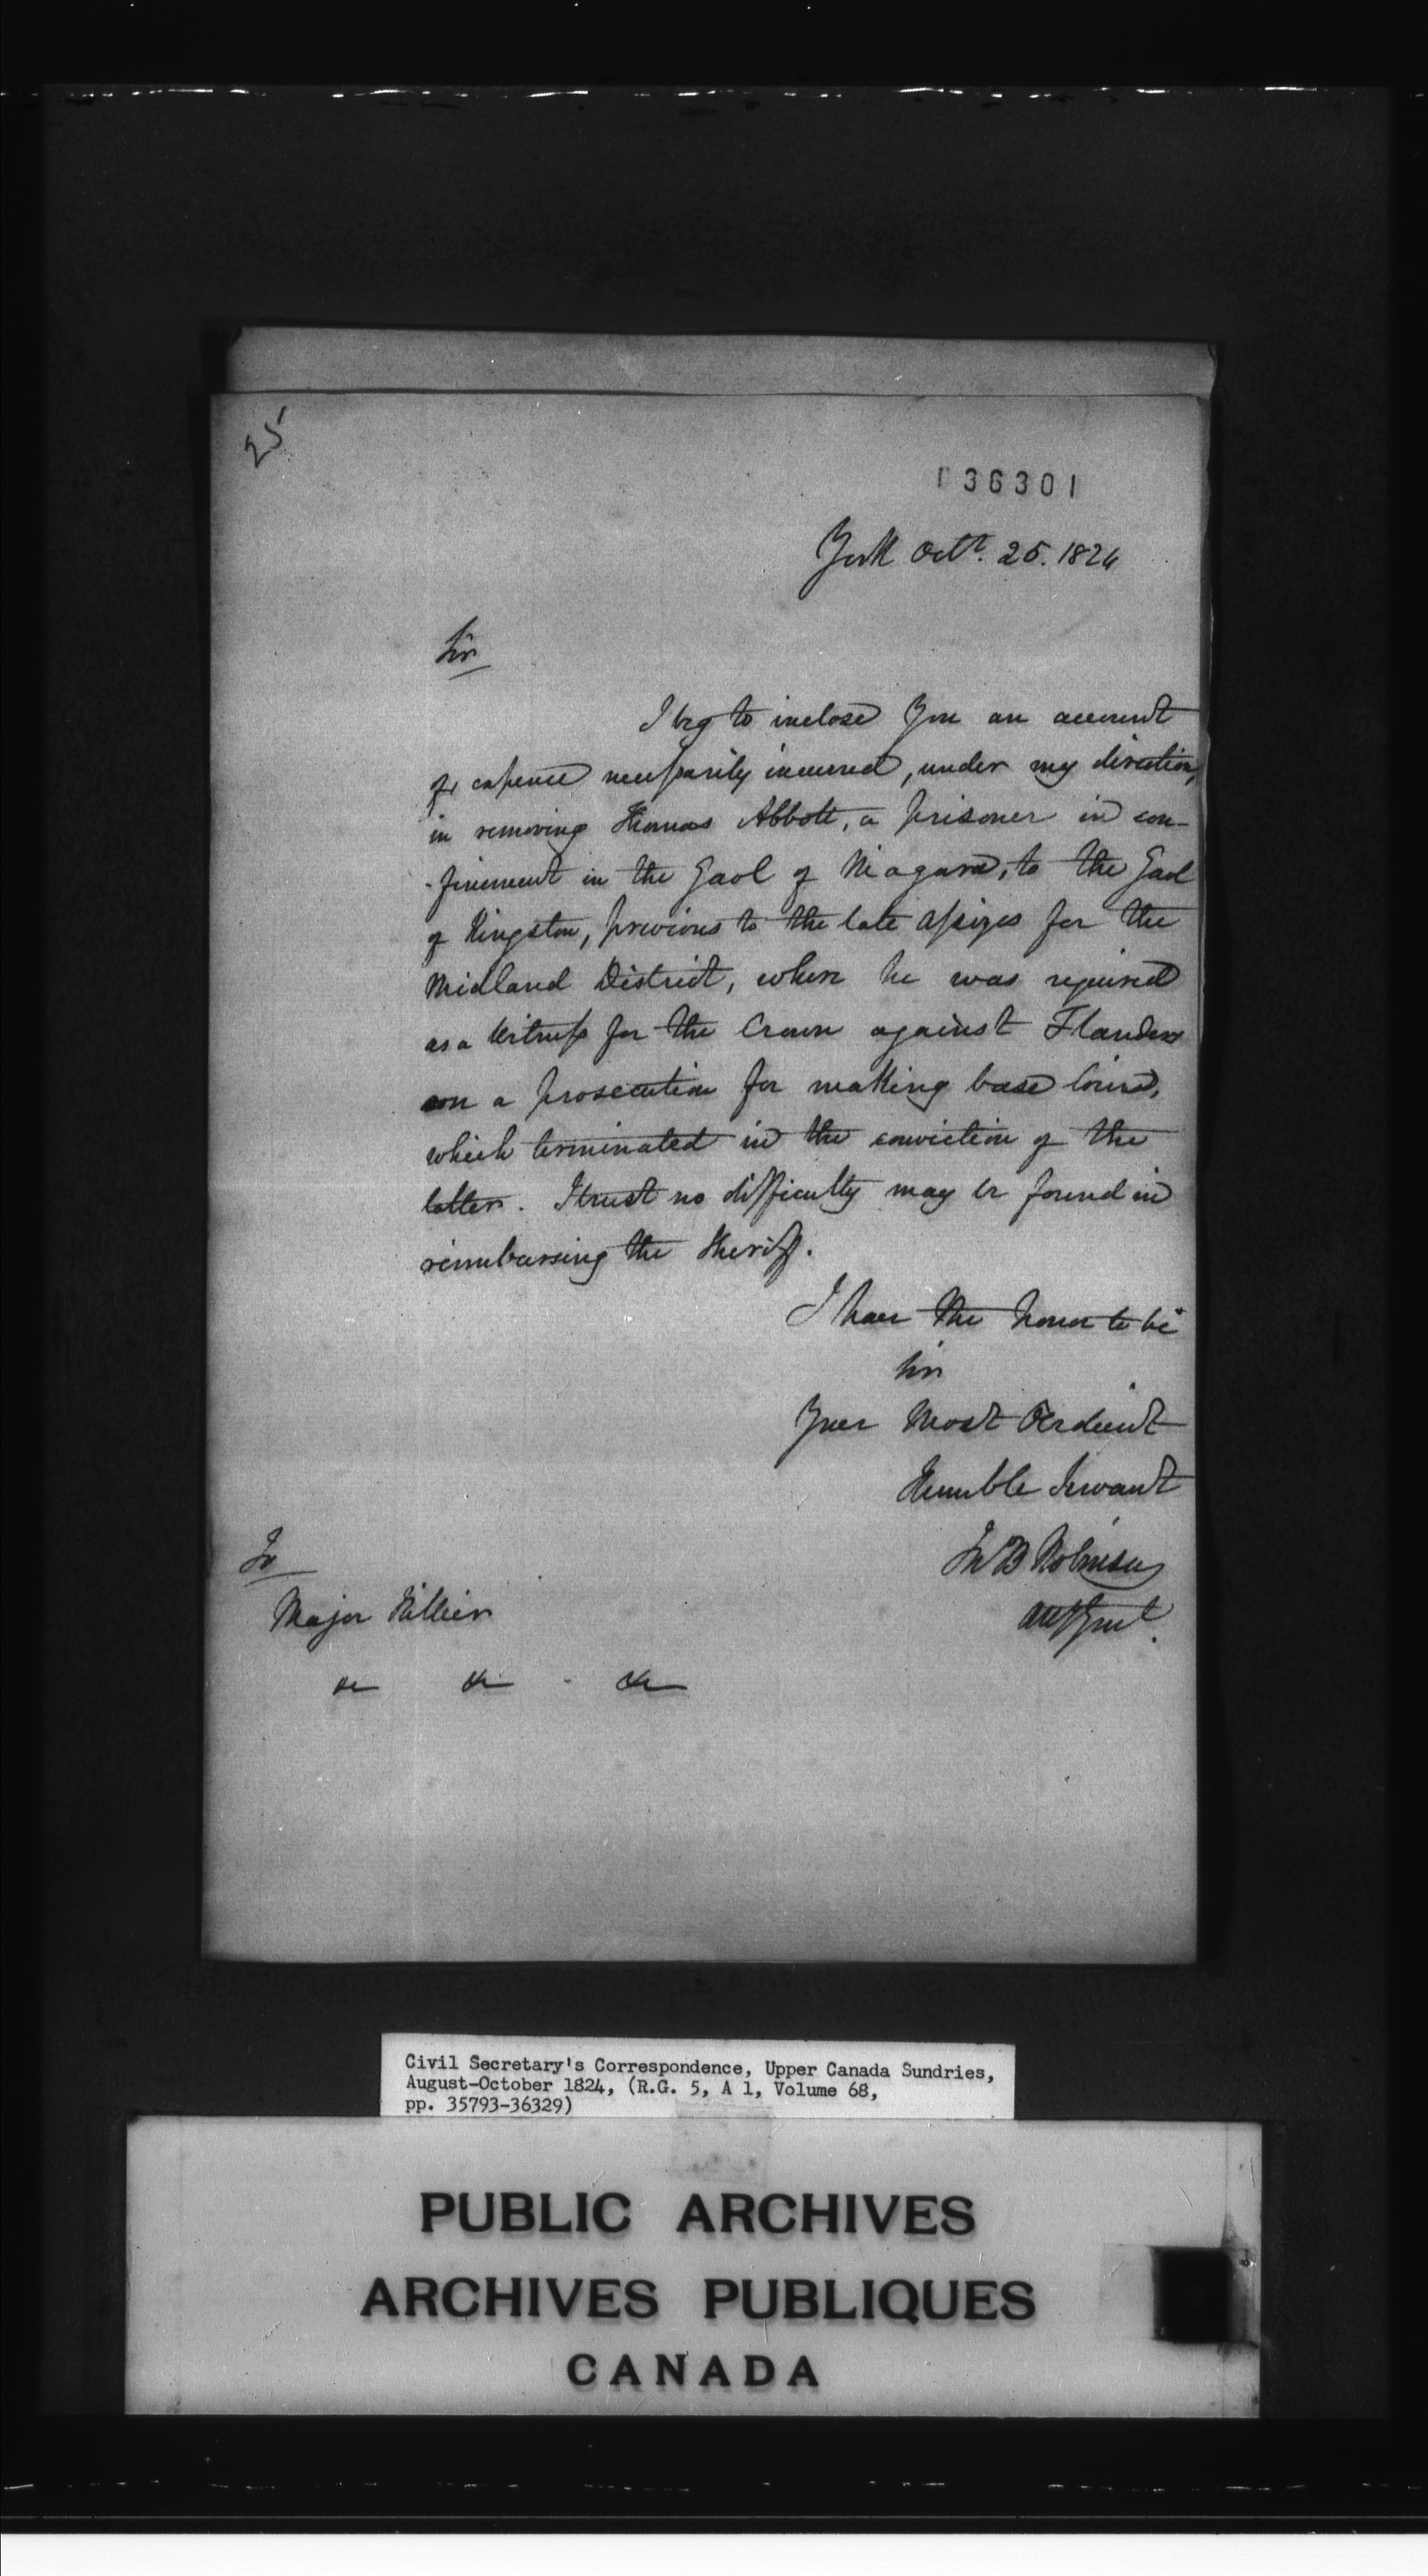 25
36301
York Octr. 25. 1824
Sir
I beg to inclose You an account
of expence necessarily incurred, under my direction,
in removing Thomas Abbott, a prisoner in con-
-finement in the Gaol of Niagara, to the Gaol
of Kingston, previous to the late Assizes for the
Midland District, where he was required
as a Witness for the Crown against Flanders
on a prosecution for making base Coins,
which terminated in the conviction of the
latter. I trust no difficulty may be found in
reimbursing the Sheriff.
I have the honor to be
Sir
Your Most Obedient
Humble Servant
Jno B Robinson
Atty Genl.
To
Major Hillier
&c &c &c
Civil Secretary's Correspondence, Upper Canada Sundries,
August-October 1824, (R.G. 5, A 1, Volume 68,
pp. 35793-36329)
PUBLIC ARCHIVES
ARCHIVES PUBLIQUES
CANADA